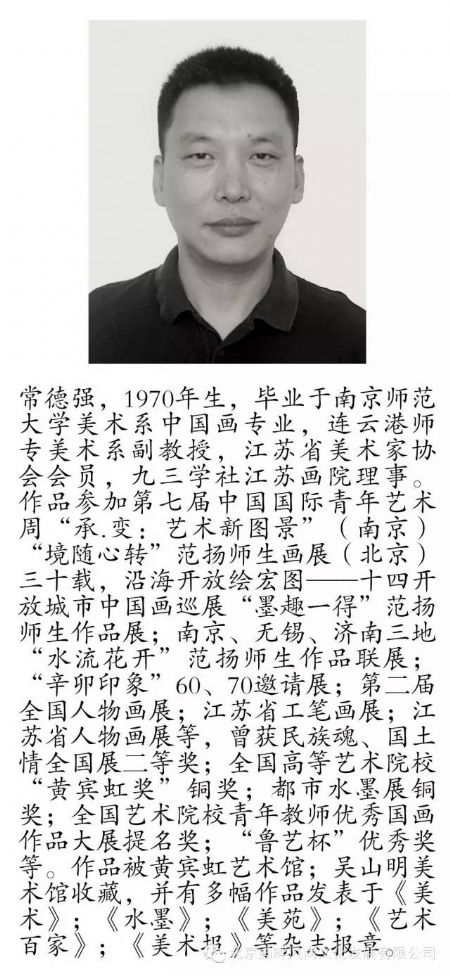 常德强，1970年生，毕业于南京师范
大学美术系中国画专业，连云港师
专美术系副教授，江苏省美术家协
会会员，九三学社江苏画院理事。
作品参加第七届中国国际青年艺术
周“承.变：艺术新图景”（南京）
“境随心转”范扬师生画展（北京）
三十载，沿海开放绘宏图——十四开
放城市中国画巡展“墨趣一得”范扬
师生作品展；南京、无锡、济南三地
“水流花开”范扬师生作品联展；
“辛卯印象”60、70邀请展；第二届
全国人物画展；江苏省工笔画展；江
苏省人物画展等，曾获民族魂、国土
情全国展二等奖；全国高等艺术院校
“黄宾虹奖”铜奖；都市水墨展铜
奖；全国艺术院校青年教师优秀国画
作品大展提名奖；“鲁艺杯”优秀奖
等。作品被黄宾虹艺术馆；吴山明美
术馆收藏，并有多幅作品发表于《美
术》；《水墨》；《美苑》；《艺术
百家》；《美术报》等杂志报章。